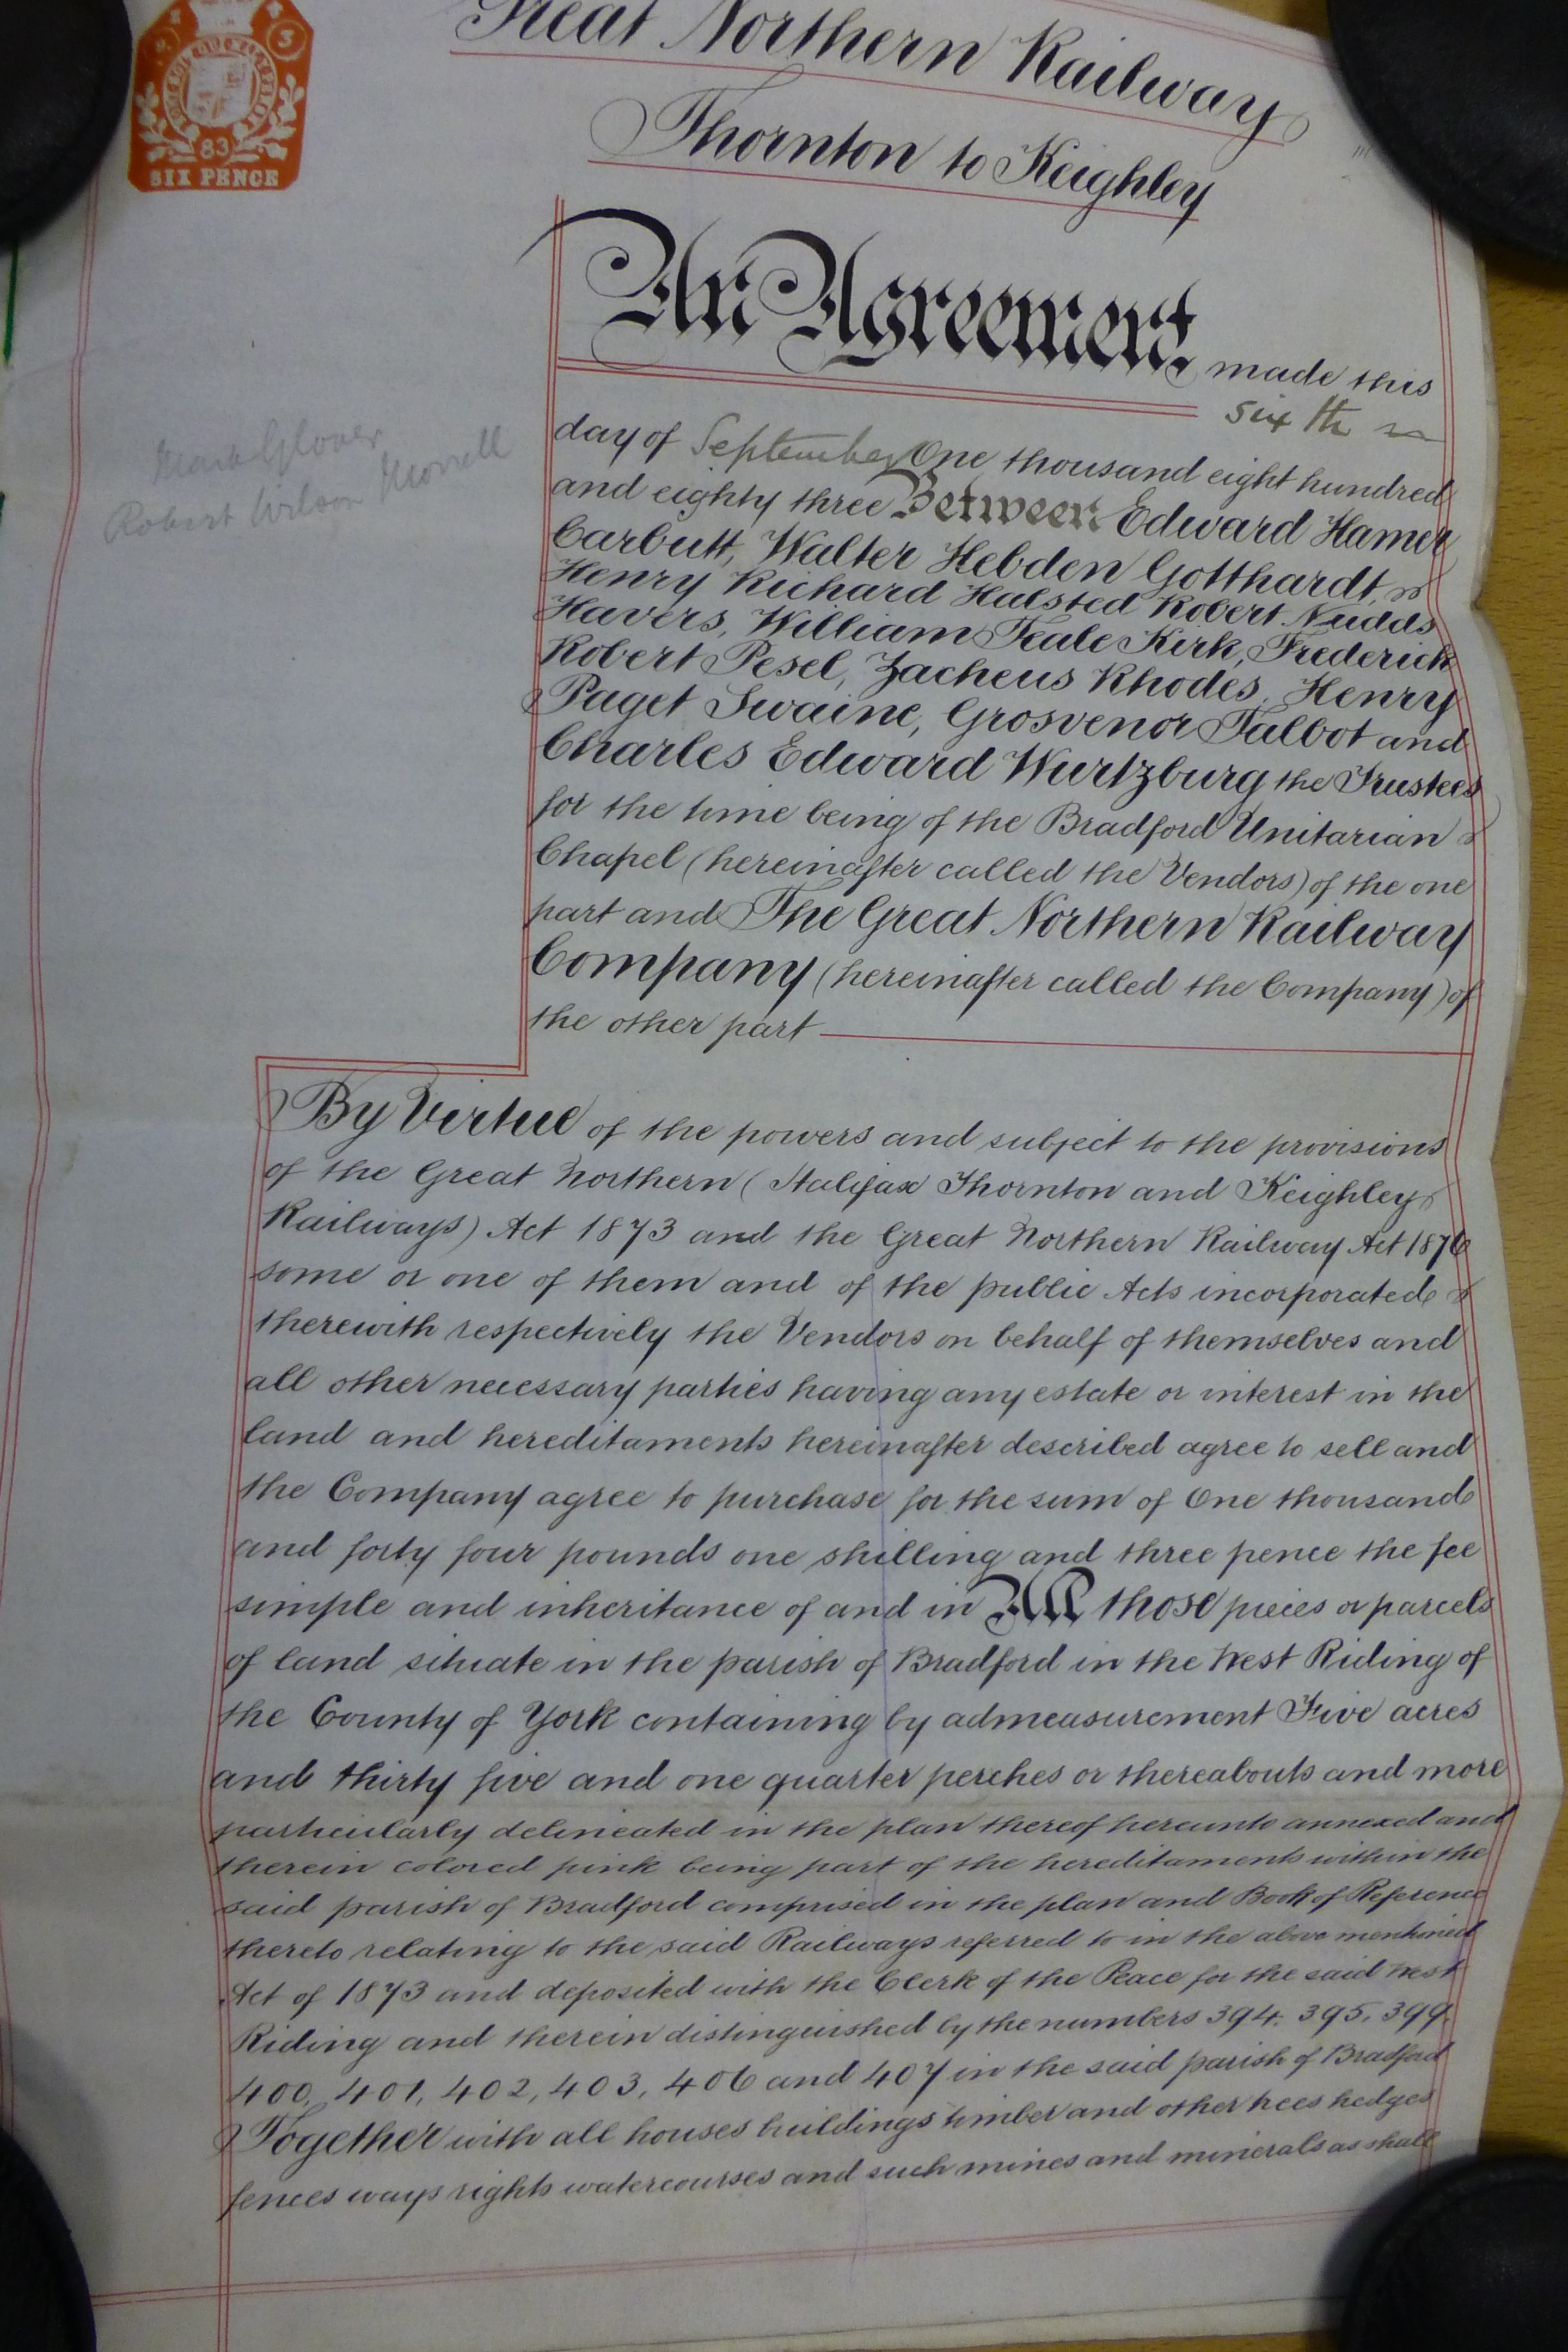 3
83
SIX PENCE
Great Northern Railway
Thornton to Keighley
An Agreement made this
sixth
day of September One thousand eight hundred
and eighty three Between Edward Hamer
Carbutt, Walter Hebden Gotthardt,
Henry Richard Halsted Robert Nudds
Havers, William Teale Kirk, Frederick
Robert Pesel, Zacheus Rhodes, Henry
Paget Swaine, Grosvenor Talbot and
Charles Edward Wurtzburg the Trustees
for the time being of the Bradford Unitarian
Chapel (hereinafter called the Vendors) of the one
part and The Great Northern Railway
Company (hereinafter called the Company) of
the other part
Mark Glover
Robert Wilson Morrell
By Virtue of the powers and subject to the provisions
of the Great Northern (Halifax Thornton and Keighley
Railways) Act 1873 and the Great Northern Railway Act 1876
some or one of them and of the public Acts incorporated
therewith respectively the Vendors on behalf of themselves and
all other necessary parties having any estate or interest in the
land and hereditaments hereinafter described agree to sell and
the Company agree to purchase for the sum of One thousand
and forty four pounds one shilling and three pence the fee
simple and inheritance of and in All those pieces or parcels
of land situate in the parish of Bradford in the West Riding of
the County of York containing by admeasurement Five acres
and thirty five and one quarter perches or thereabouts and more
particularly delineated in the plan thereof hereunto annexed and
therein colored pink being part of the hereditaments within the
said parish of Bradford comprised in the plan and Book of Reference
thereto relating to the said Railways referred to in the above mentioned
Act of 1873 and deposited with the Clerk of the Peace for the said West
Riding and therein distinguished by the numbers 394. 395, 399.
400, 401, 402, 403, 406 and 407 in the said parish of Bradford
Together with all houses buildings timber and other trees hedges
fences ways rights watercourses and such mines and minerals as shall